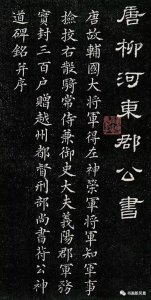 唐柳河東郡公書
唐故輔國大將軍行左神策軍將軍知軍事
撿挍右散騎常侍兼御史大夫義陽郡
實封三百户贈越州都督刑部尚書苻公神
道碑銘并序